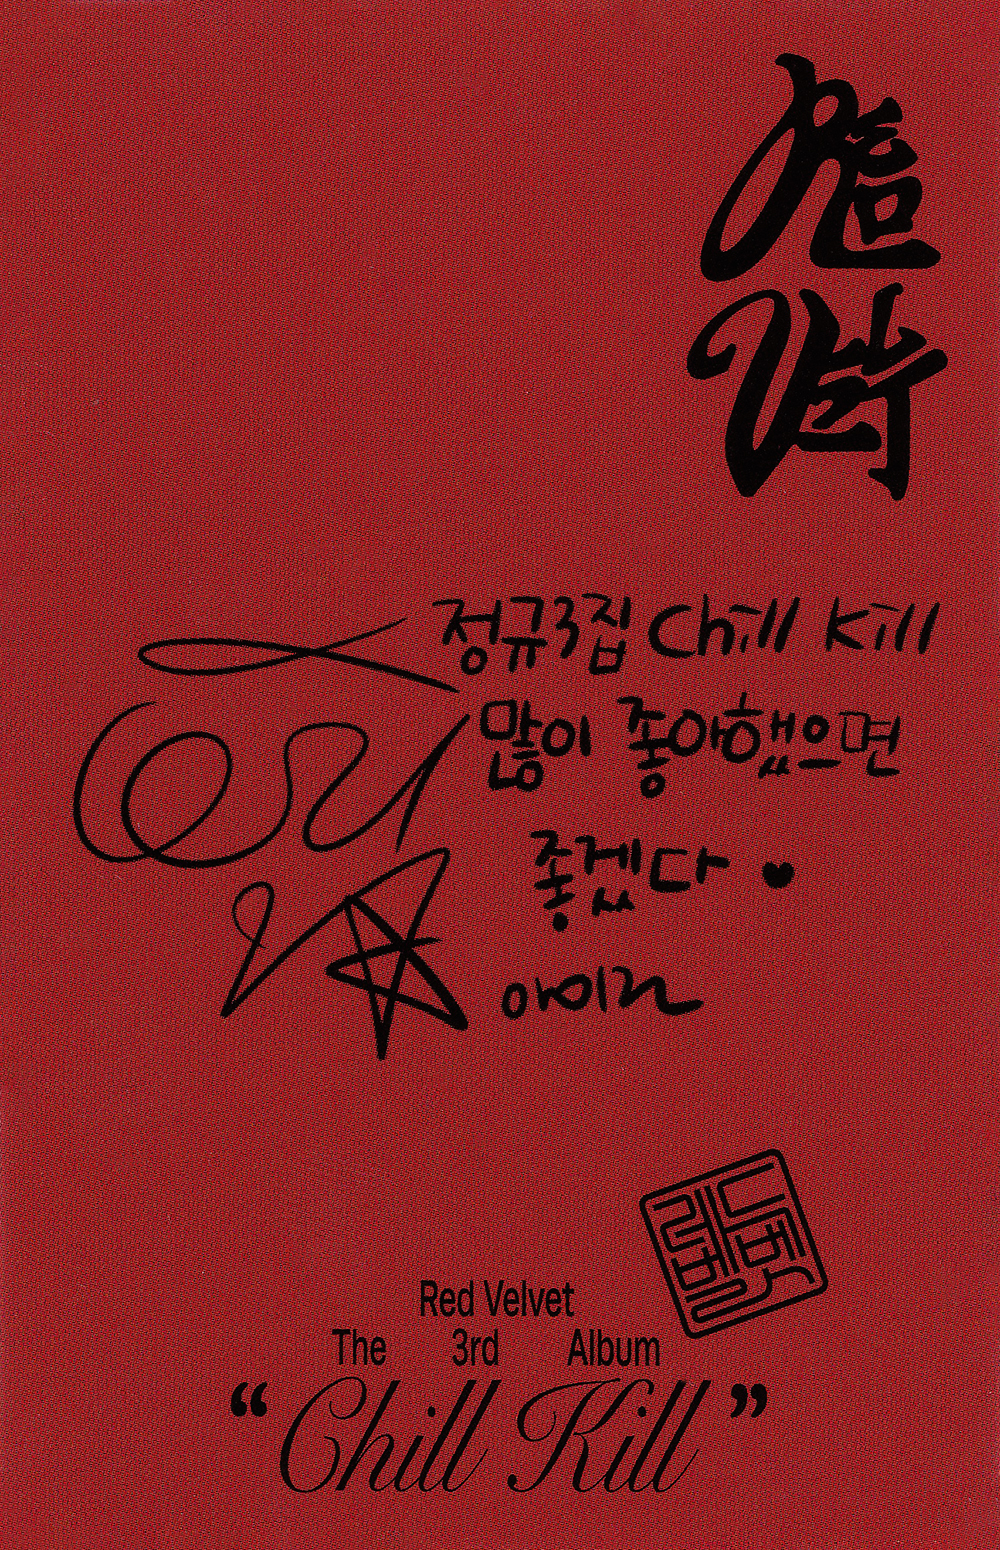 정규3집 Chill Kill
많이 좋아했으면
좋겠다 ♥
아이린
레드
벨벳
Red Velvet
The 3rd Album
“Chill Kill”